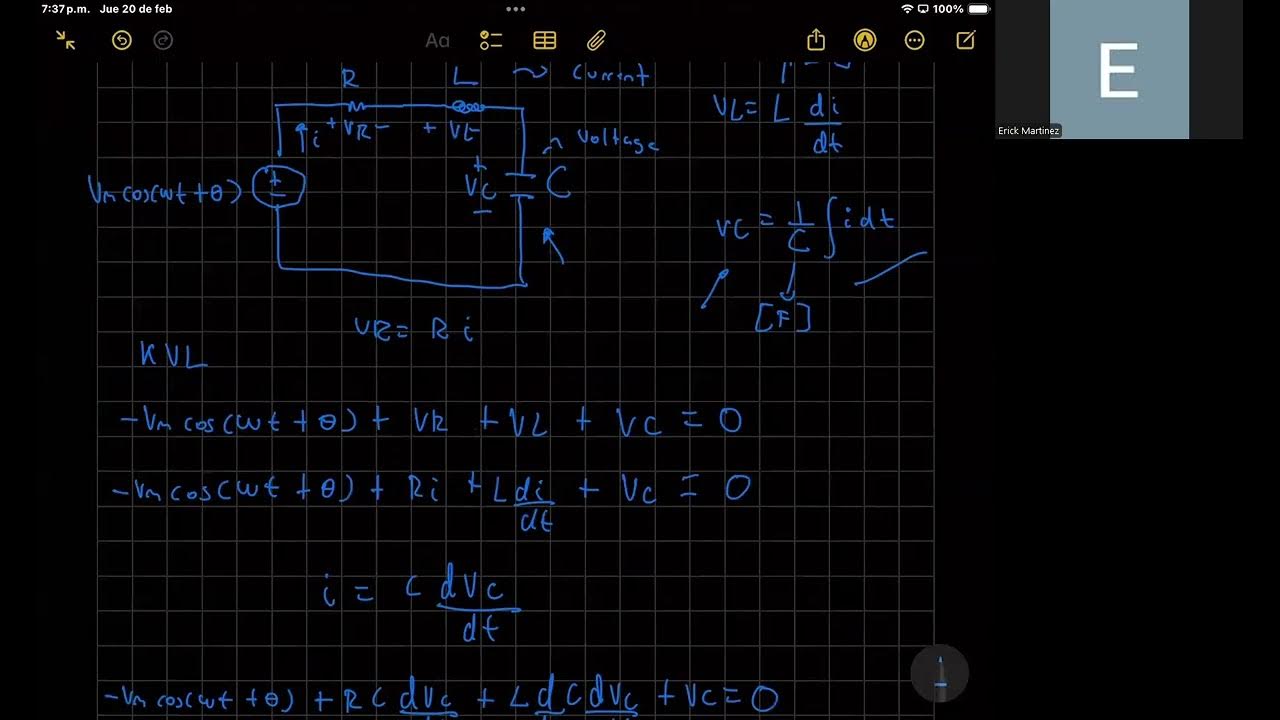 7:37 p.m. Jue 20 de feb
100%
Aa
E
Erick Martinez
R L ~> Current
i + VR - + VL
Voltage
Vm cos(wt + θ) + - + VC - C
VL = L di/dt
VC = 1/C ∫ i dt
[F]
VR = R i
KVL
-Vm cos(wt + θ) + VR + VL + VC = 0
-Vm cos(wt + θ) + Ri + L di/dt + VC = 0
i = C dVC/dt
-Vm cos(wt + θ) + RC dVC + L d C dVC + VC = 0